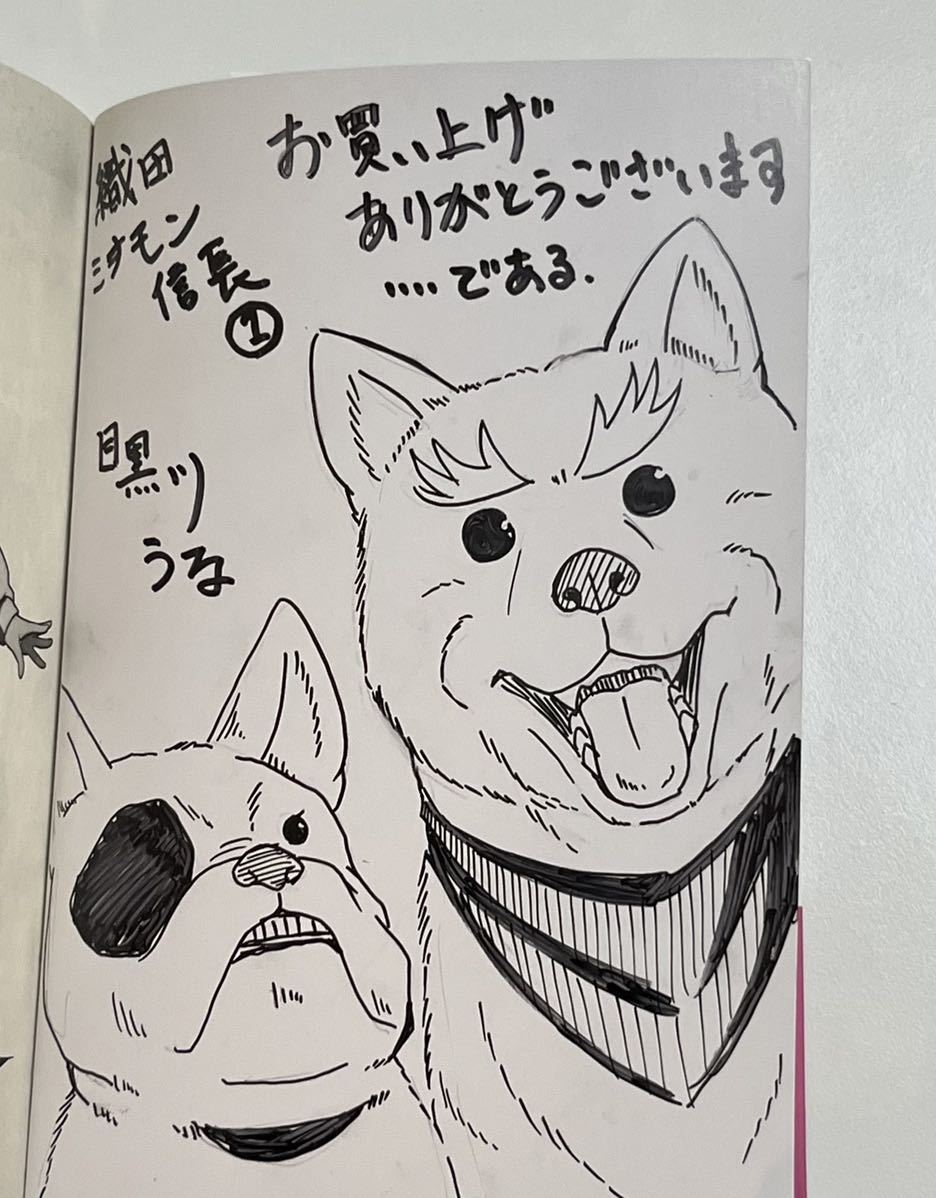 お買い上げ
ありがとうございます
‥‥である.
織田
シナモン
信長
①
目黒川
うな